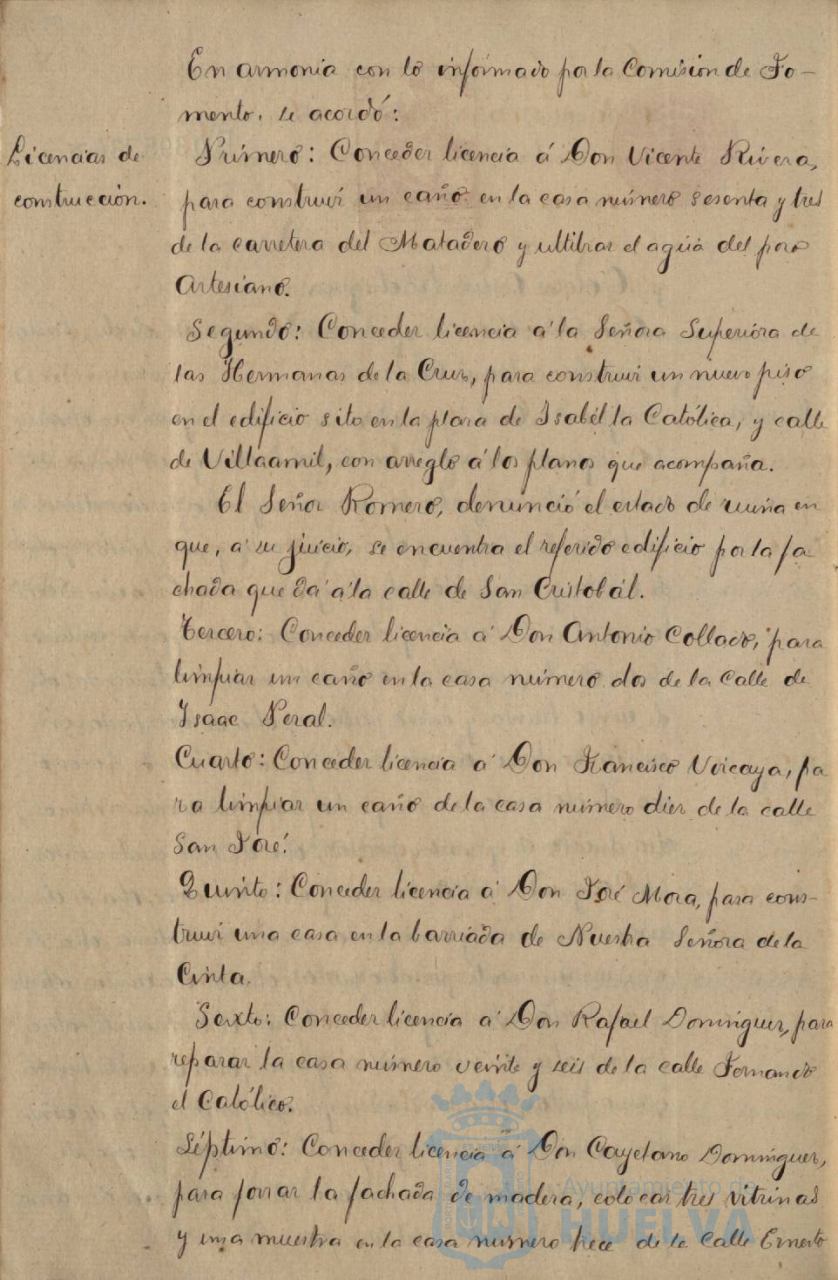 En armonia con lo informado por la Comision de Fo-
mento, se acordó:
Licencias de
construcción.
Primero: Conceder licencia á Don Vicente Rivera,
para construir un caño en la casa número sesenta y tres
de la carretera del Matadero y utilizar el agua del pozo
Artesiano.
Segundo: Conceder licencia á la Señora Superiora de
las Hermanas de la Cruz, para construir un nuevo piso
en el edificio sito en la plaza de Isabel la Católica, y calle
de Villaamil, con arreglo á los planos que acompaña.
El Señor Romero, denunció el estado de ruina en
que, a su juicio, se encuentra el referido edificio por la fa
chada que dá á la calle de San Cristobál.
Tercero: Conceder licencia á Don Antonio Collado, para
limpiar un caño en la casa número dos de la Calle de
Isaac Peral.
Cuarto: Conceder licencia á Don Francisco Vizcaya, pa
ra limpiar un caño de la casa número diez de la calle
San José.
Quinto: Conceder licencia á Don José Mora, para cons-
truir una casa en la barriada de Nuestra Señora de la
Cinta.
Sexto: Conceder licencia á Don Rafael Dominguez, para
reparar la casa número veinte y seis de la calle Fernando
el Católico.
Séptimo: Conceder licencia á Don Cayetano Dominguez,
para forrar la fachada de madera, colocar tres vitrinas
y una muestra en la casa número trece de la Calle Ernesto
Ayuntamiento de
HUELVA